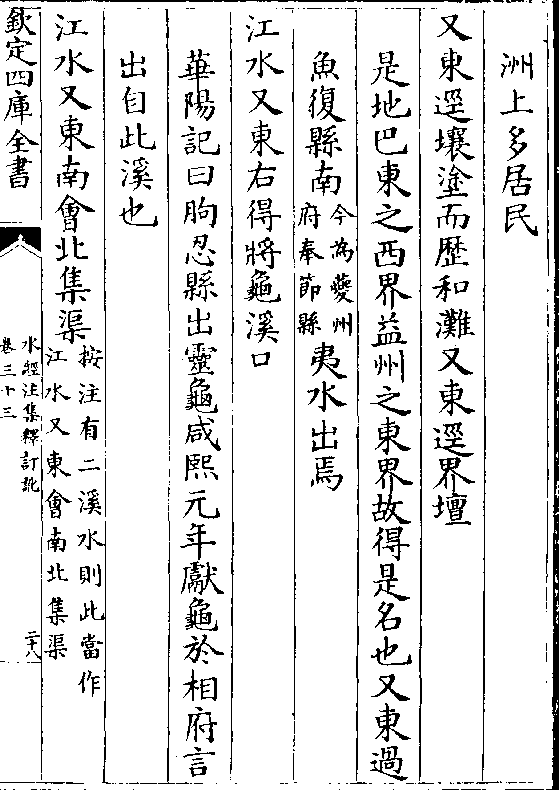 洲上多居民
又東逕壤塗而歴和灘又東逕界壇
是地巴東之西界益州之東界故得是名也又東過
魚復縣南今為䕫州府奉節縣夷水出焉
江水又東右得將龜溪口
華陽記曰朐忍縣出靈龜咸熙元年獻龜於相府言
出自此溪也
江水又東南會北集渠按注有二溪水則此當作江水又東會南北集渠
欽定四庫全書
水經注集釋訂訛
卷三十三
二十八